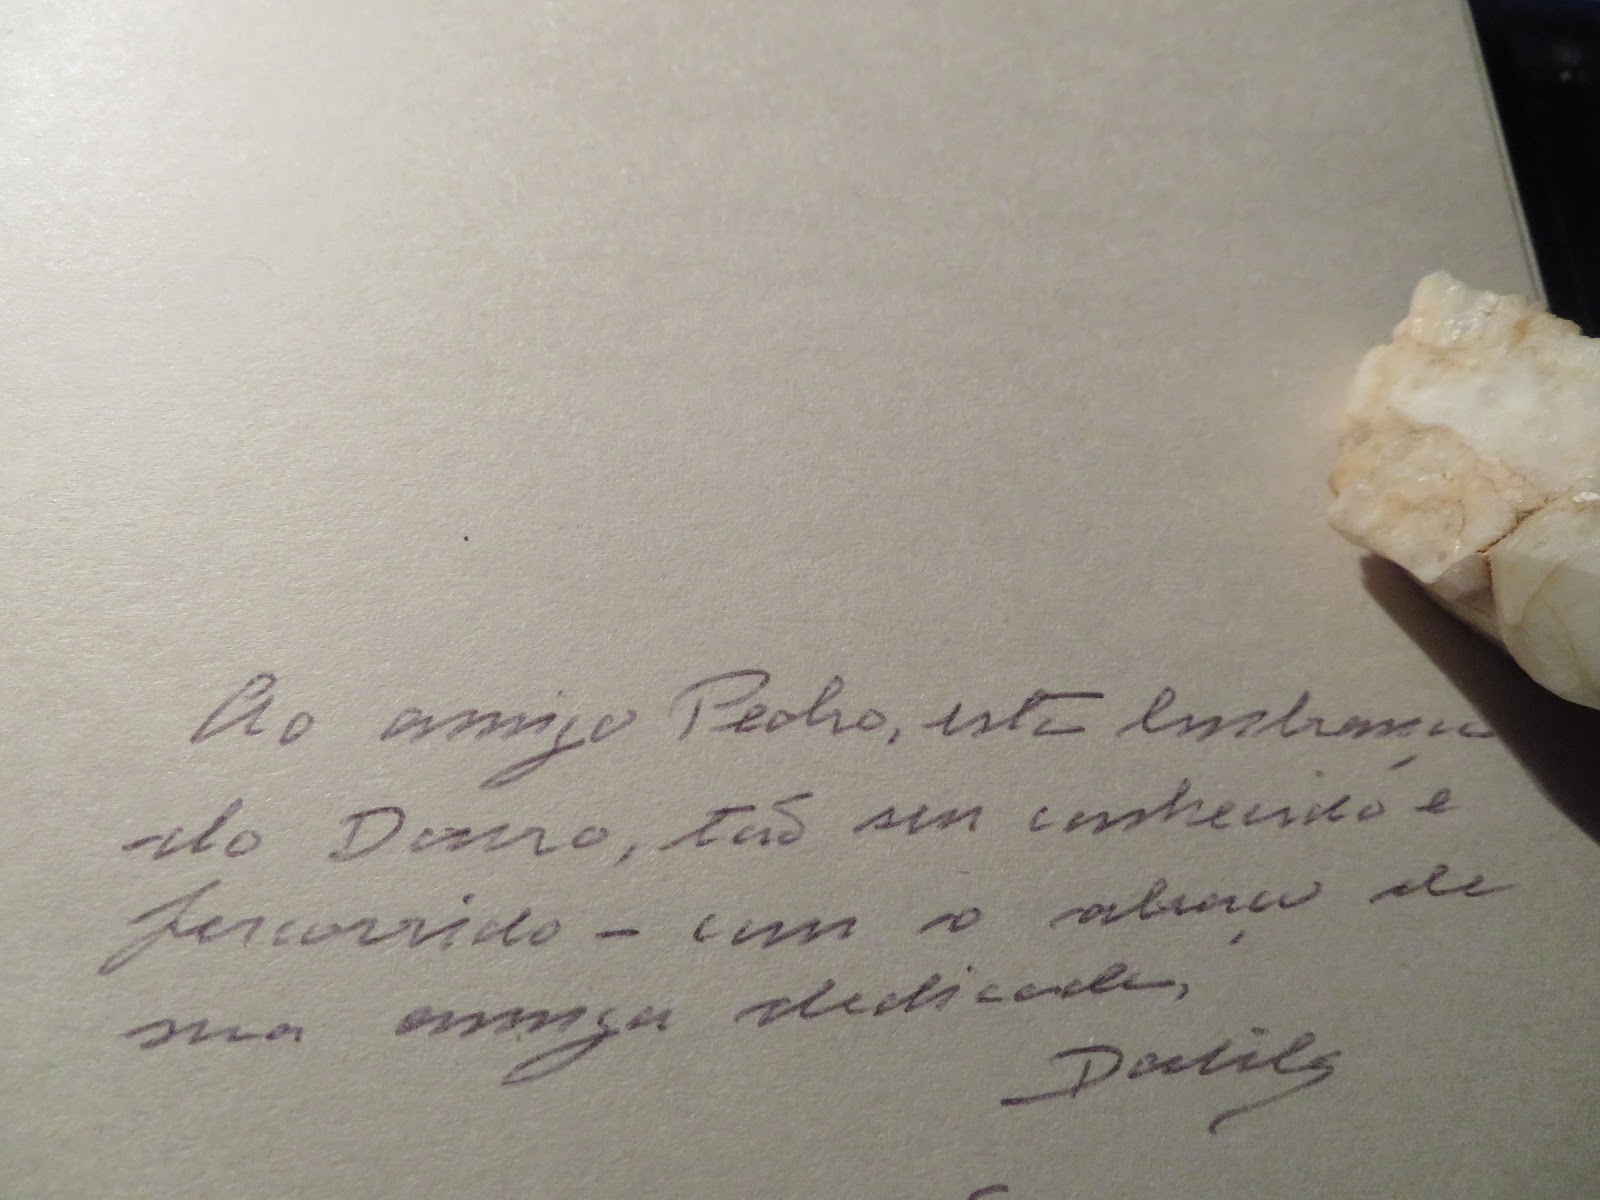 Ao amigo Pedro, esta lembrança
do Douro, tão seu conhecido e
percorrido – com o abraço de
sua amiga dedicada,